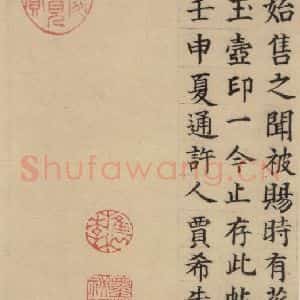 始售之聞被賜時有
玉壺印一今止存此帖
壬申夏通許人賈希
Shufawang.cn